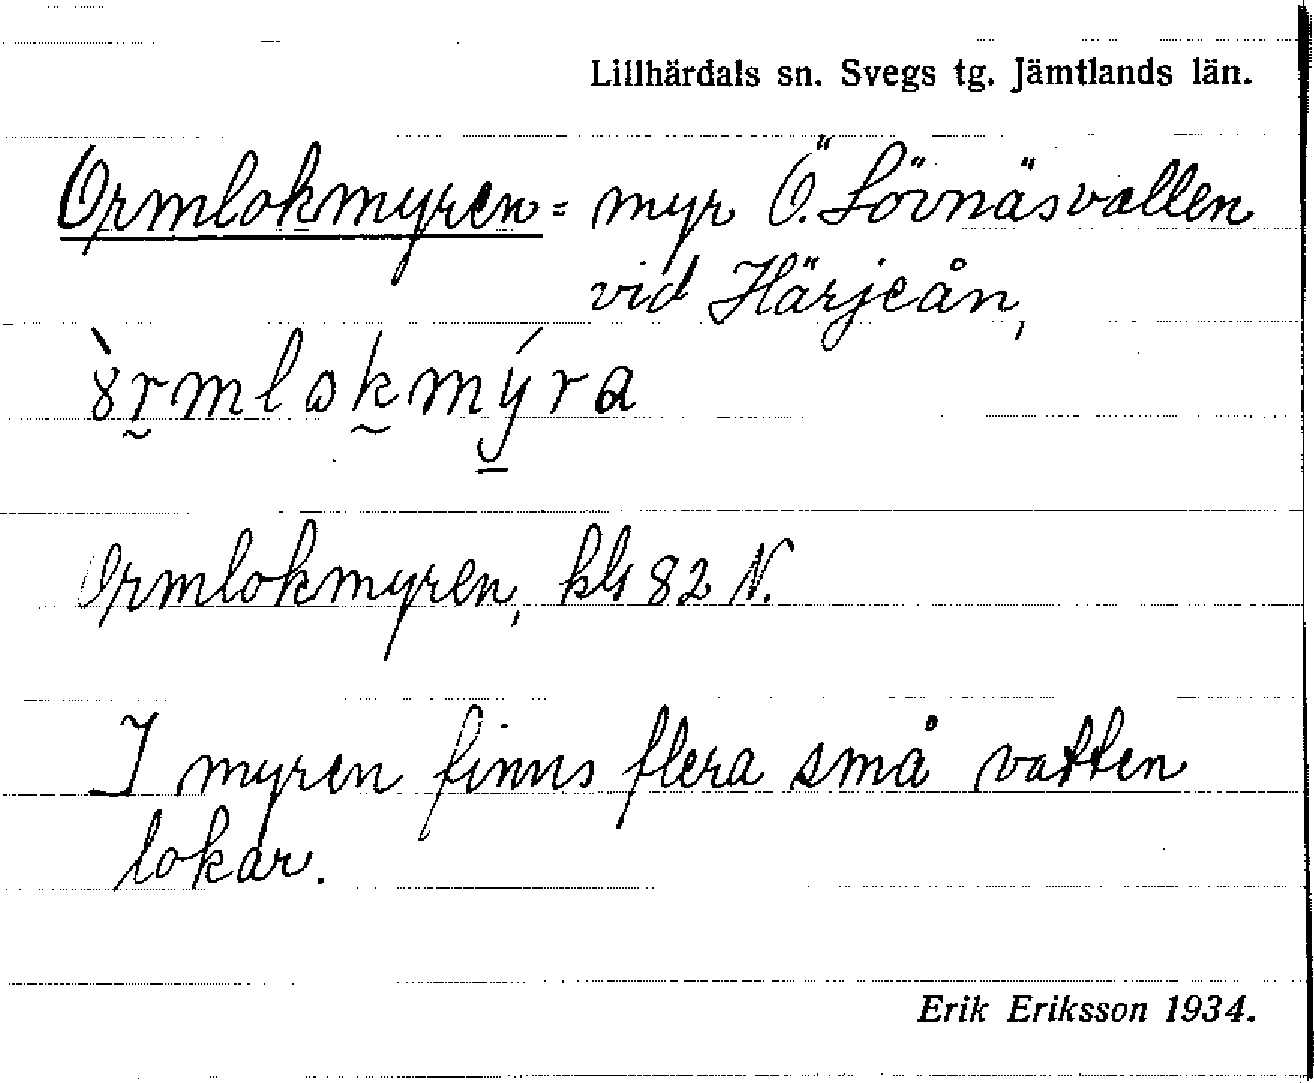 Lillhärdals sn. Svegs tg. Jämtlands län.
Ormlokmyren = myr Ö. Lövnäsvallen
vid Härjeån,
Ormlokmyren, kbl 82 N.
I myren finns flera små vatten
lokar.
Erik Eriksson 1934.